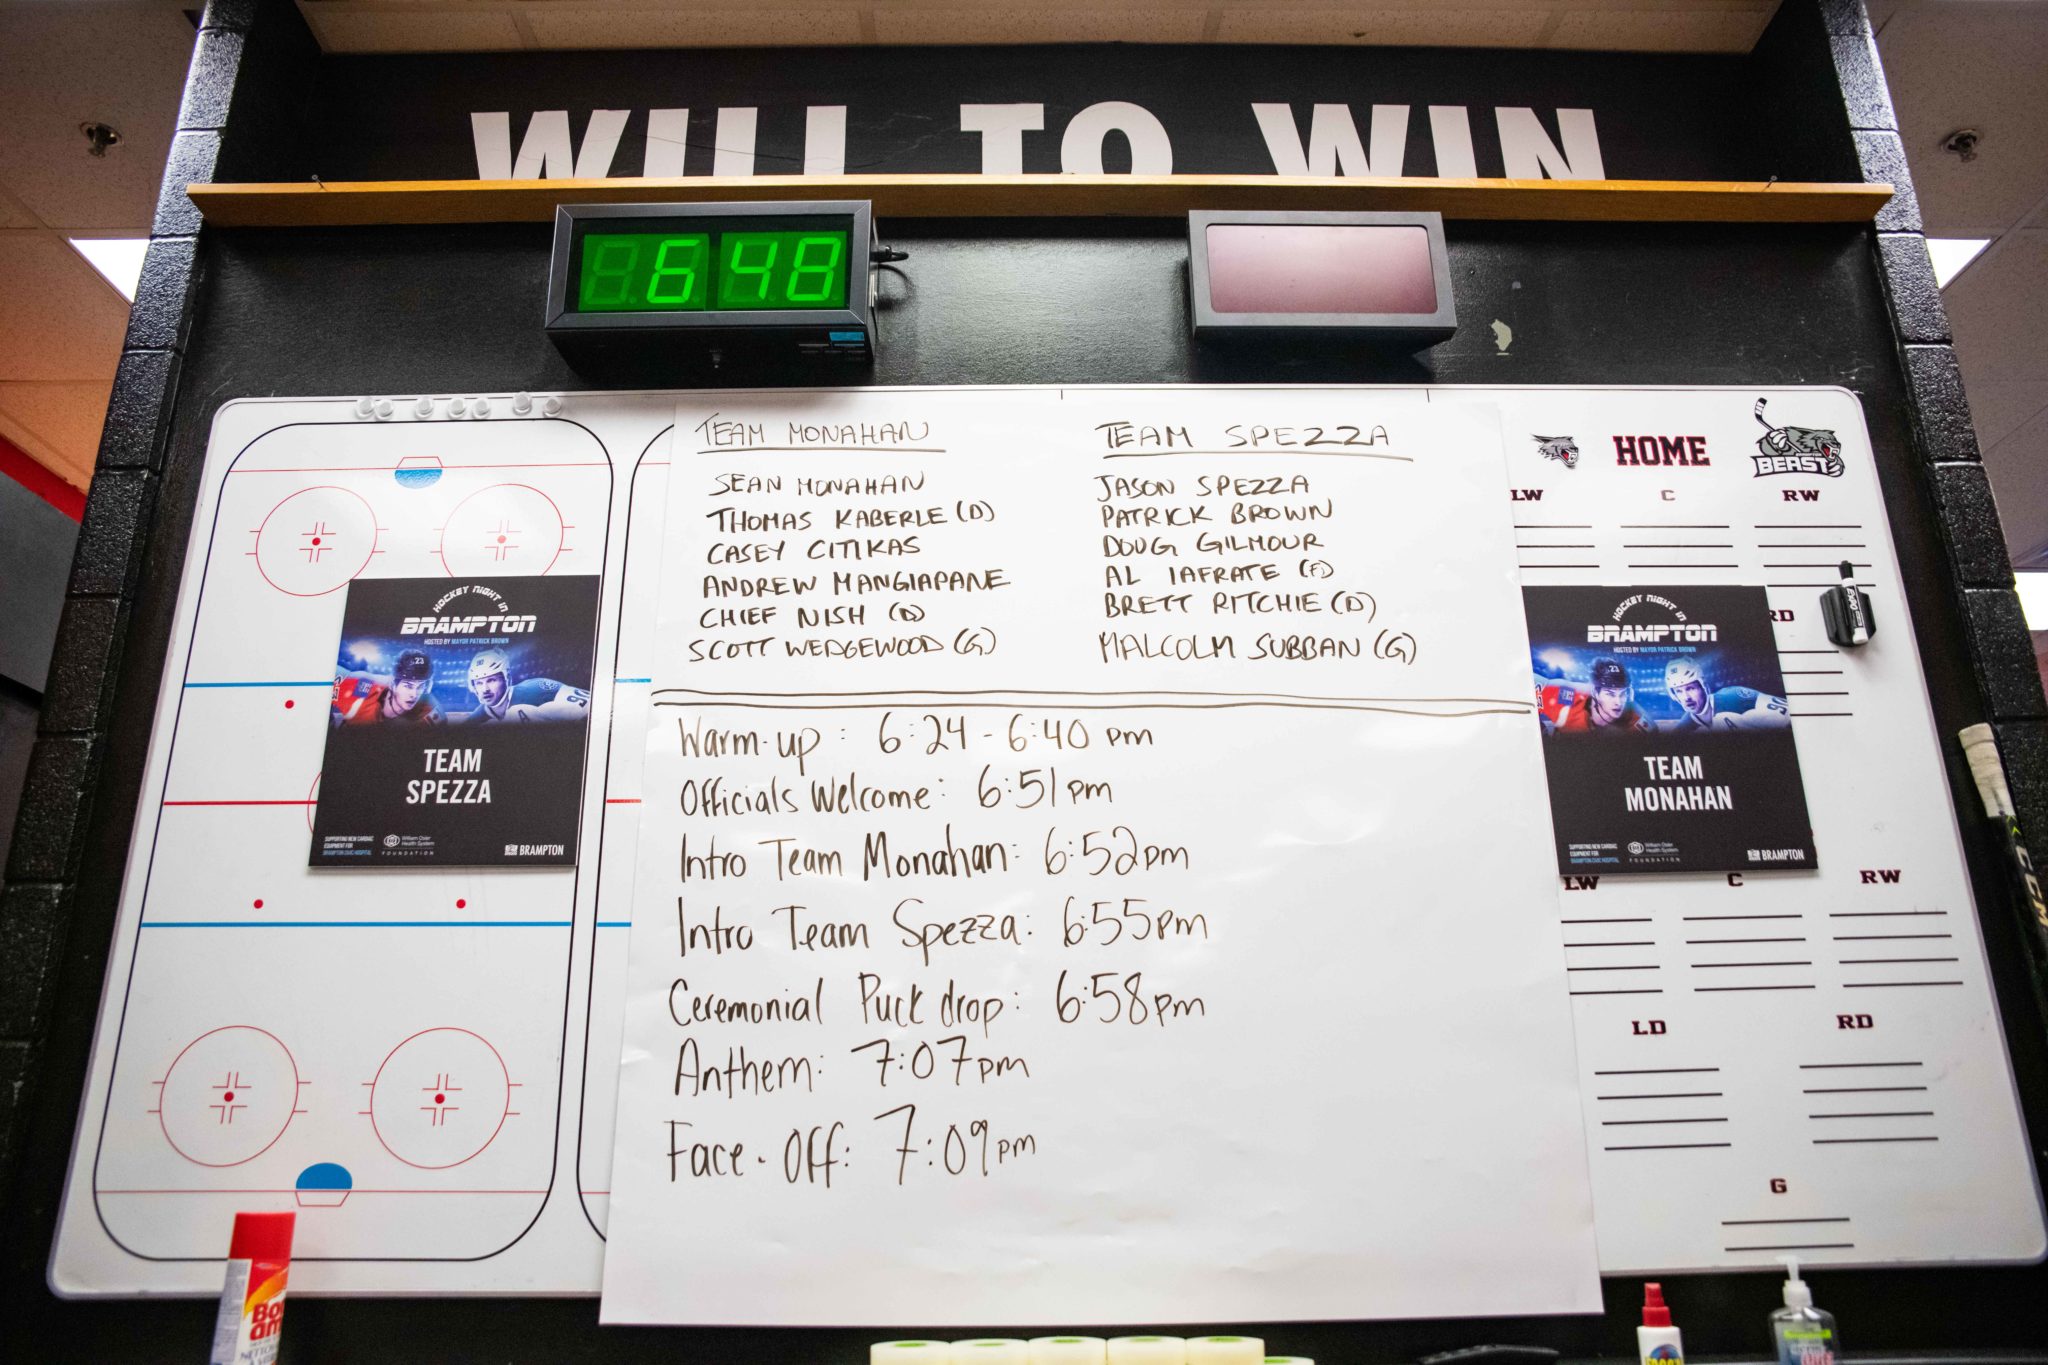 WILL TO WIN
648
TEAM MONAHAN
SEAN MONAHAN
THOMAS KABERLE (D)
CASEY CITIKAS
ANDREW MANGIAPANE
CHIEF NISH (D)
SCOTT WEDGEWOOD (G)
TEAM SPEZZA
JASON SPEZZA
PATRICK BROWN
DOUG GILMOUR
AL IAFRATE (F)
BRETT RITCHIE (D)
MALCOLM SUBBAN (G)
Warm-up : 6:24 - 6:40 pm
Officials Welcome: 6:51 pm
Intro Team Monahan: 6:52pm
Intro Team Spezza: 6:55pm
Ceremonial Puck drop: 6:58pm
Anthem: 7:07pm
Face-Off: 7:09pm
HOCKEY NIGHT IN
BRAMPTON
HOSTED BY MAYOR PATRICK BROWN
23
90
TEAM
SPEZZA
SUPPORTING NEW CARDIAC
EQUIPMENT FOR
BRAMPTON CIVIC HOSPITAL
William Osler
Health System
FOUNDATION
BRAMPTON
HOME
BEAST
LW C RW
RD
HOCKEY NIGHT IN
BRAMPTON
HOSTED BY MAYOR PATRICK BROWN
23
90
TEAM
MONAHAN
SUPPORTING NEW CARDIAC
EQUIPMENT FOR
BRAMPTON CIVIC HOSPITAL
William Osler
Health System
FOUNDATION
BRAMPTON
LW C RW
LD RD
G
EXPO
CCM